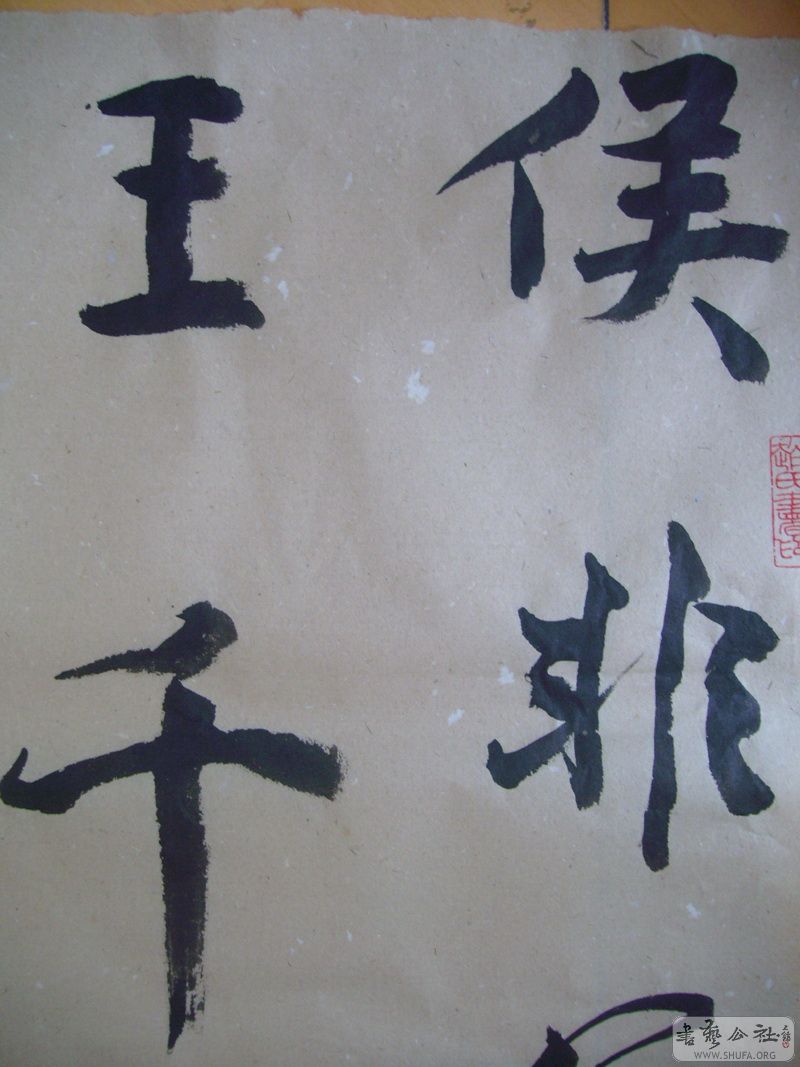 侯非
王千
書藝公社
WWW.SHUFA.ORG